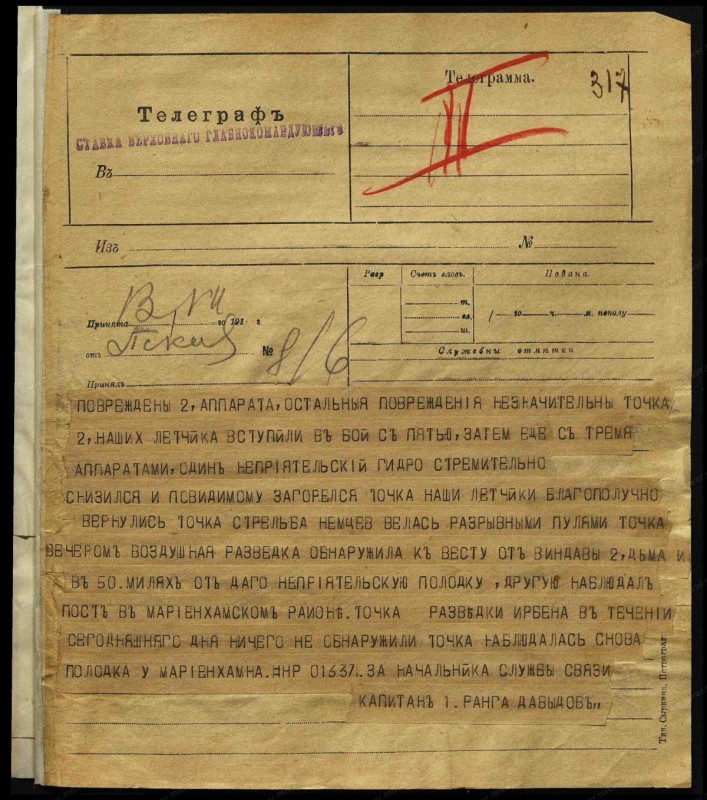 Телеграмма.
317
Телеграфъ
СТАВКА ВЕРХОВНАГО ГЛАВНОКОМАНДУЮЩАГО
Въ
III
Изъ №
Разр Счетъ словъ. Подана.
т.
сл.
ш.
го ч. м. пополу
Служебны отмѣтки
Принята го 191 г.
отъ № 8/6
Принялъ
ПОВРЕЖДЕНЫ 2, АППАРАТА, ОСТАЛЬНЫЯ ПОВРЕЖДЕНІЯ НЕЗНАЧИТЕЛЬНЫ ТОЧКА
2, НАШИХ ЛЕТЧИКА ВСТУПИЛИ ВЪ БОЙ СЪ ПЯТЬЮ, ЗАТЕМ ЕЩЕ СЪ ТРЕМЯ
АППАРАТАМИ, ОДИНЪ НЕПРІЯТЕЛЬСКІЙ ГИДРО СТРЕМИТЕЛЬНО
СНИЗИЛСЯ И ПОВИДИМОМУ ЗАГОРЕЛСЯ ТОЧКА НАШИ ЛЕТЧИКИ БЛАГОПОЛУЧНО
ВЕРНУЛИСЬ ТОЧКА СТРЕЛЬБА НЕМЦЕВ ВЕЛАСЬ РАЗРЫВНЫМИ ПУЛЯМИ ТОЧКА
ВЕЧЕРОМЪ ВОЗДУШНАЯ РАЗВЕДКА ОБНАРУЖИЛА КЪ ВЕСТУ ОТЪ ВИНДАВЫ 2, ДЫМА И
ВЪ 50. МИЛЯХЪ ОТЪ ДАГО НЕПРІЯТЕЛЬСКУЮ ПОЛОДКУ, ДРУГУЮ НАБЛЮДАЛЪ
ПОСТЪ ВЪ МАРІЕНХАМСКОМЪ РАЙОНѢ. ТОЧКА РАЗВѢДКИ ИРБЕНА ВЪ ТЕЧЕНІИ
СЕГОДНЯШНЯГО ДНЯ НИЧЕГО НЕ ОБНАРУЖИЛИ ТОЧКА НАБЛЮДАЛАСЬ СНОВА
ПОЛОДКА У МАРІЕНХАМНА. НР 01637.. ЗА НАЧАЛЬНИКА СЛУЖБЫ СВЯЗИ
КАПИТАНЪ 1. РАНГА ДАВЫДОВЪ,,
Тип. Сыркина, Петроград